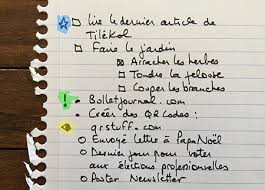 ☐ Lire le dernier article de
Tilékol
☐ Faire le jardin
☒ Arracher les herbes
☐ Tondre la pelouse
☐ Couper les branches
! • Bulletjournal.com
• Créer des QR Codes :
qrstuff.com
○ Envoyé lettre à Papa Noël
○ Dernier jour pour voter
aux élections professionnelles
○ Poster Newsletter